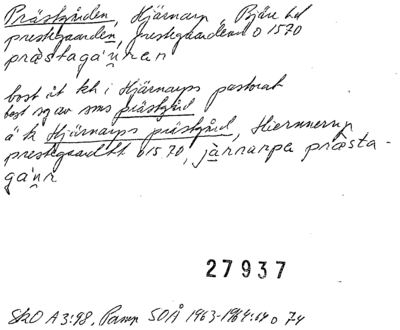 Prästgården, Hjärnarp, Bjäre hd
prestegaarden, prestegaarden o 1570
præstagánnan
bost åt kh i Hjärnarps pastorat
best sg av sms prästgård
ä k Hjärnarps prästgård, Hiernnerup
prestegaardtt o 1570, jàrnarpa præsta-
gánr
27937
SkO A3:98, Pamp SOÅ 1963-1964:14 o 74